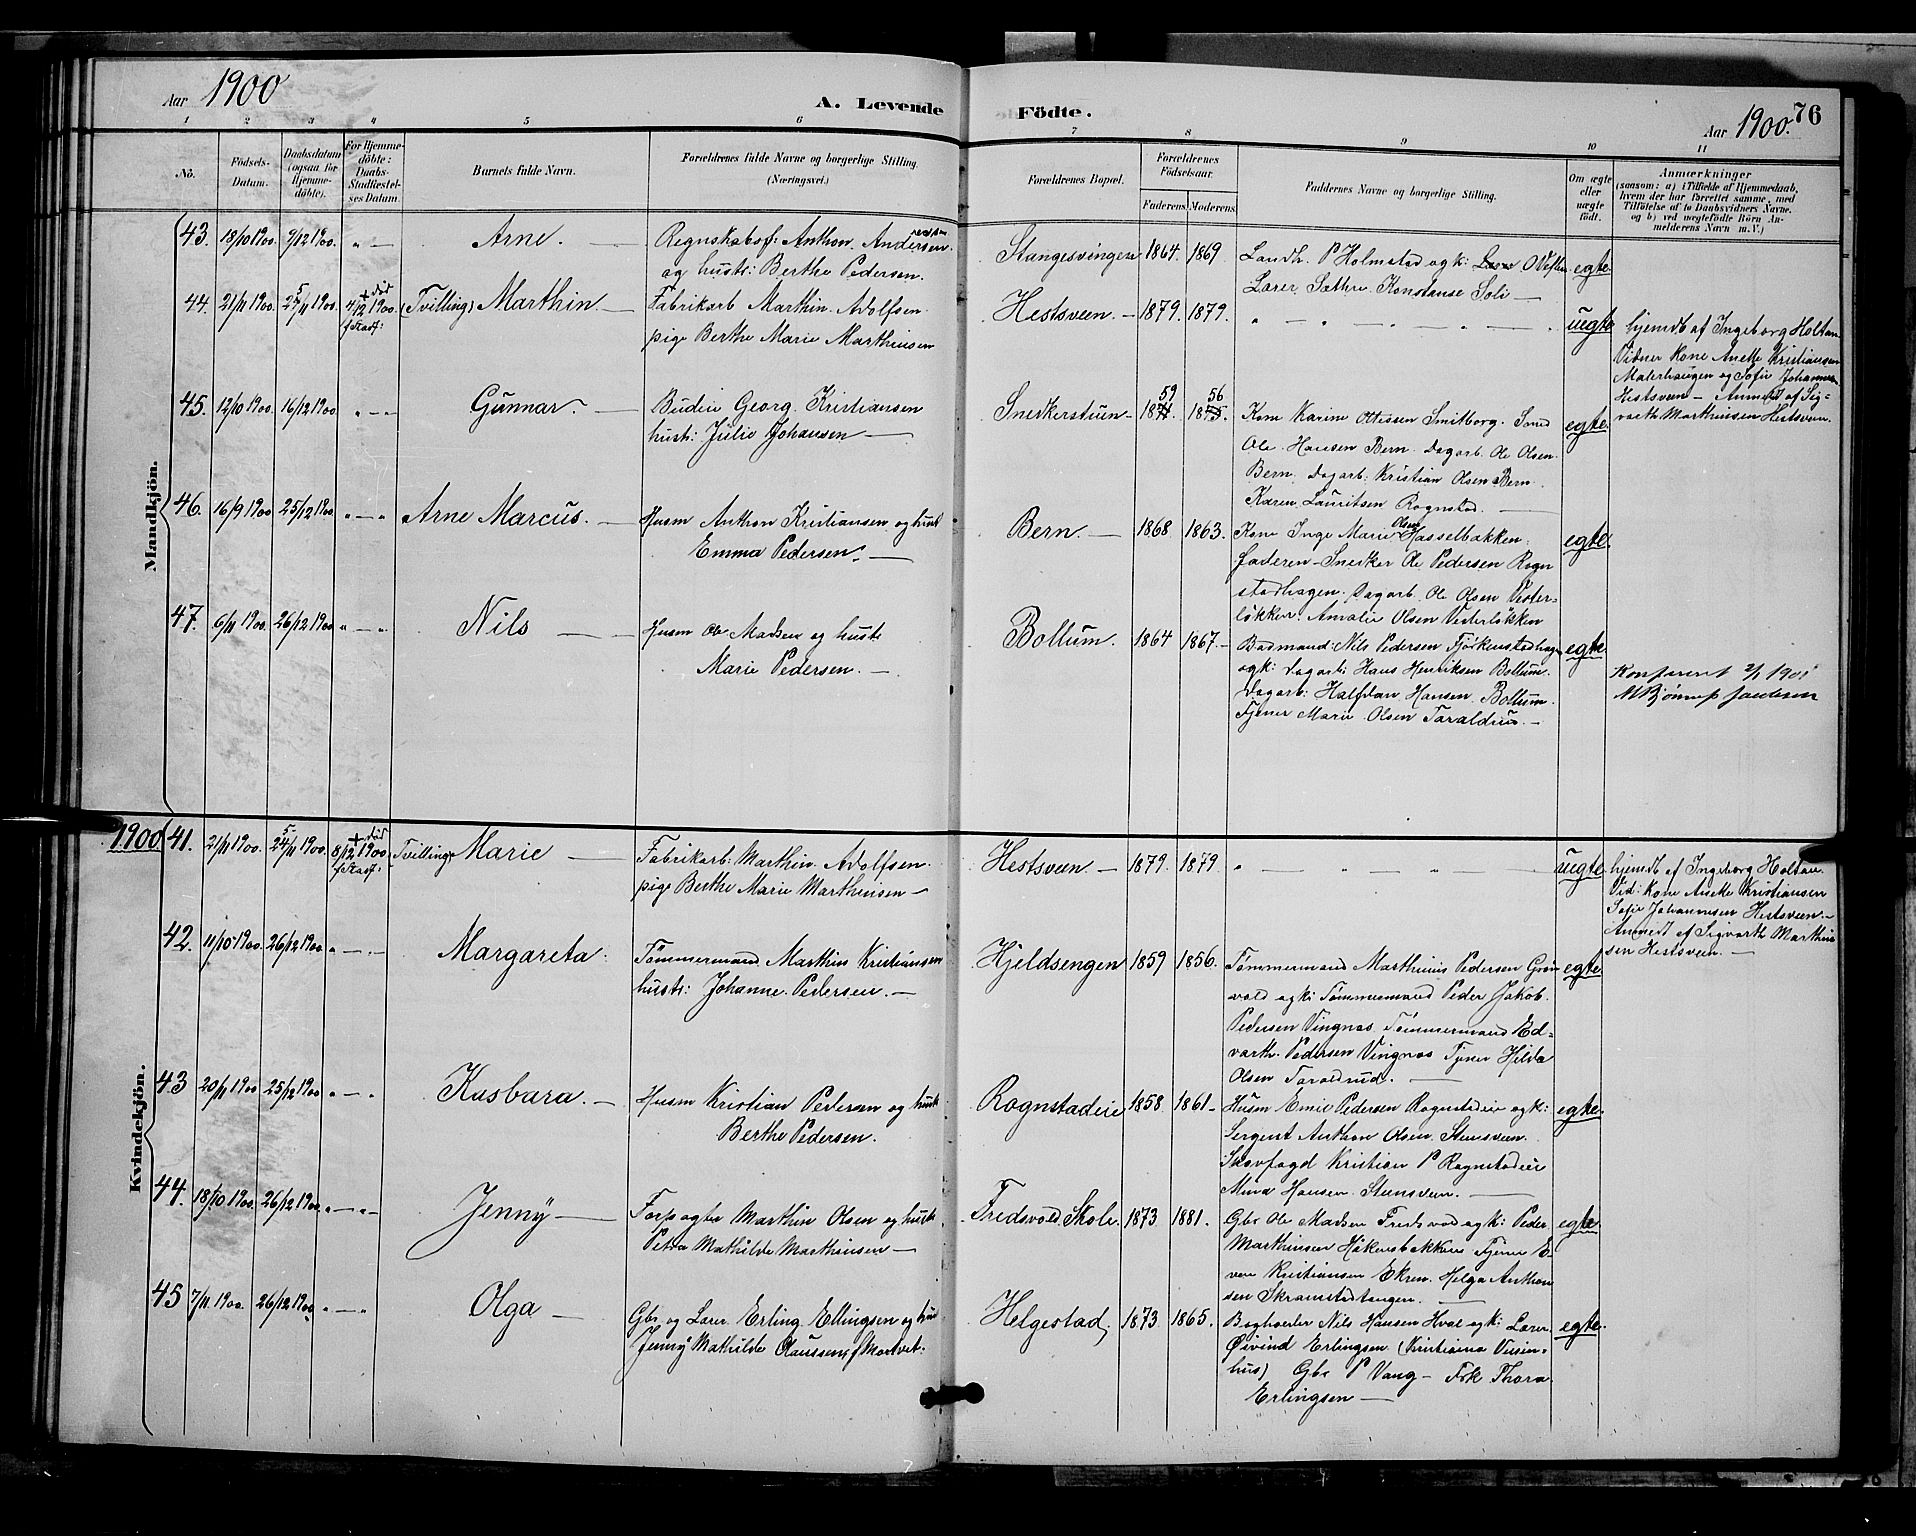 Aar 1900
A. Levende
Födte.
Aar 1900. 76
1 2 3 4 5 6 7 8 9 10 11
No.
Födsels-Datum.
Daabsdatum (ogsaa for Hjemmedöbte).
For Hjemmedöbte: Daabs-Stadfæstelses Datum.
Barnets fulde Navn.
Forældrenes fulde Navne og borgerlige Stilling.
(Næringsvei.)
Forældrenes Bopæl.
Forældrenes Födselsaar.
Faderens. Moderens.
Faddernes Navne og borgerlige Stilling.
Om ægte eller uægte födt.
Anmærkninger
(saasom: a) i Tilfælde af Hjemmedaab,
hvem der har forrettet samme, med
Tilföielse af to Daabsvidners Navne,
og b) ved uægtefödte Börn Anmelderens Navn m.V.)
Mandkjön.
43. 18/10 1900. 9/12 1900. " — " Arne. — Regnskabsf: Anthon Andersen
og hustr: Berthe Pedersen.
Stangesvingen 1864. 1869
Landh. P Holmstad og k:
Lærer Sæthre. Konstanse Soli —
egte
44. 21/11 1900 25/11 1900. + død 4/12 1900. (Tvilling) Marthin. — Fabrikarb Marthin Adolfsen
pige Berthe Marie Marthinsen
Hestsveen. — 1879. 1879. " — " — " — "
uegte
hjemdt af Ingeborg Holtan
Vidner Kone Anette Kristiansen
Malerhaugen og Sofie Johannesen
Hestsveen — Anmeldt af Sigvarth Marthinsen Hestsveen.
45. 12/10 1900. 16/12 1900 " — " Gunnar. — Budeie Georg Kristiansen
hustr: Julie Johansen —
Snekkerstuen — 59 56
Kone Karine Ottessen Smitborg. Smed
Ole Hansen Bern. Dagarb. Ole Olsen
Bern. Dagarb: Kristian Olsen Bern.
Karen Lauritsen Rognstad. —
egte.
46. 16/9 1900 25/12 1900 " — " Arne Marcus. — Husm Anthon Kristiansen og hust
Emma Pedersen. —
Bern. — 1868 1863.
Kone Inge Marie Olsen Hasselbakken.
faderen — Snekker Ole Pedersen Rogn
stadhagen. Dagarb. Ole Olsen Vesterløkken. Amalie Olsen Vederløkken
egte.
47. 6/11 1900. 26/12 1900 " — " Nils — Husm Ole Madsen og hustr
Marie Pedersen. —
Bollum. 1864 1867. —
Badmand: Nils Pedersen Fjørkenstadhagen
og k: Dagarb: Hans Henriksen Bollum.
Dagarb: Halfdan Hansen. Bollum.
Tjener Marie Olsen Taraldrus. —
egte.
Konfereret 2/1 1901
Kvindekjön.
1900
41. 21/11 1900. 24/11 1900. + død 8/12 1900 Tvilling Marie — Fabrikarb: Marthin Adolfsen.
pige Berthe Marie Marthinsen —
Hestsveen — 1879. 1879. " — " — "
uegte
hjemdt af Ingeborg Holtan.
Vid: Kone Anette Kristiansen
Sofie Johannesen Hestsveen. —
Anmedt af Sigvarth Marthin
sen Hestsveen. —
42. 11/10 1900. 26/12 1900 " — " Margareta. Tømmermand Marthin Kristiansen
hustr: Johanne Pedersen. —
Hjeldsengen 1859 1856.
Tømmermand Marthinus Pedersen Grøn
vold og k: Tømmermand Peder Jakob.
Pedersen Vingnos. Tømmermand Ed-
varth. Pedersen Vingnos Tjener Hilda
Olsen Taraldrud. —
egte
43 20/11 1900 25/12 1900 " — " Kasbara. — Husm Kristian Pedersen og hust
Berthe Pedersen.
Rognstadeie 1858 1861 —
Husm Emil Pedersen Rognstadeie og k:
Sergent Anthon Olsen Stensveen.
Skovfogd Kristian P Rognstadeie
Mina Hansen. Stensveen. —
egte.
44. 18/10 1900. 26/12 1900. " — " Jenny — Forpagter Marthin Olsen og hustr
Petra Mathilde Marthinsen —
Fredsvold Skole. 1873 1881.
Gbr Ole Madsen Fredsvold og k: Peder
Marthinsen Håkensbakken Tjener E-
ven Kristiansen Ekren. Helga Anthon
sen Skramstadtangen. —
egte
45 7/11 1900. 26/12 1900 " — " Olga — Gbr og Lærer Erling Ellingsen og hus
Jenny Mathilde Claussen,
Helgestad, 1873 1865.
Boghoerler Nils Hansen Hval og k: Lærer.
Øivind Erlingsen (Kristiania
hus) Gbr P Vang — Frk Thora
Erlingsen —
egte.